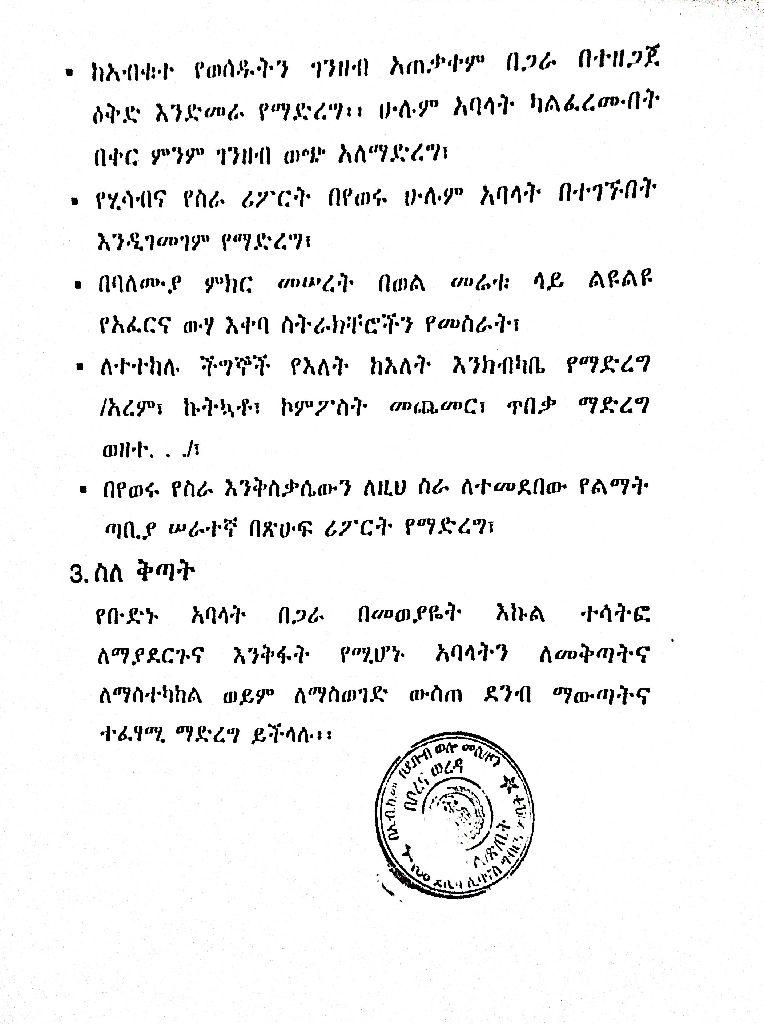 ▪ ከአብቁተ የወሰዱትን ገንዘብ አጠቃቀም በጋራ በተዘጋጀ
ዕቅድ እንድመራ የማድረግ፡፡ ሁሉም አባላት ካልፈረሙበት
በቀር ምንም ገንዘብ ወጭ አለማድረግ፣
▪ የሂሳብና የስራ ሪፖርት በየወሩ ሁሉም አባላት በተገኙበት
እንዲገመገም የማድረግ፣
▪ በባለሙያ ምክር መሠረት በወል መሬቱ ላይ ልዩልዩ
የአፈርና ውሃ እቀባ ስትራክቸሮችን የመስራት፣
▪ ለተተከሉ ችግኞች የእለት ከእለት እንክብካቤ የማድረግ
/አረም፣ ኩትኳቶ፣ ኮምፖስት መጨመር፣ ጥበቃ ማድረግ
ወዘተ. . ./፣
▪ በየወሩ የስራ እንቅስቃሴውን ለዚህ ስራ ለተመደበው የልማት
ጣቢያ ሠራተኛ በጽሁፍ ሪፖርት የማድረግ፣
3. ስለ ቅጣት
የቡድኑ አባላት በጋራ በመወያየት እኩል ተሳትፎ
ለማያደርጉና እንቅፋት የሚሆኑ አባላትን ለመቅጣትና
ለማስተካከል ወይም ለማስወገድ ውስጠ ደንብ ማውጣትና
ተፈፃሚ ማድረግ ይችላሉ፡፡
በቦረና ወረዳ